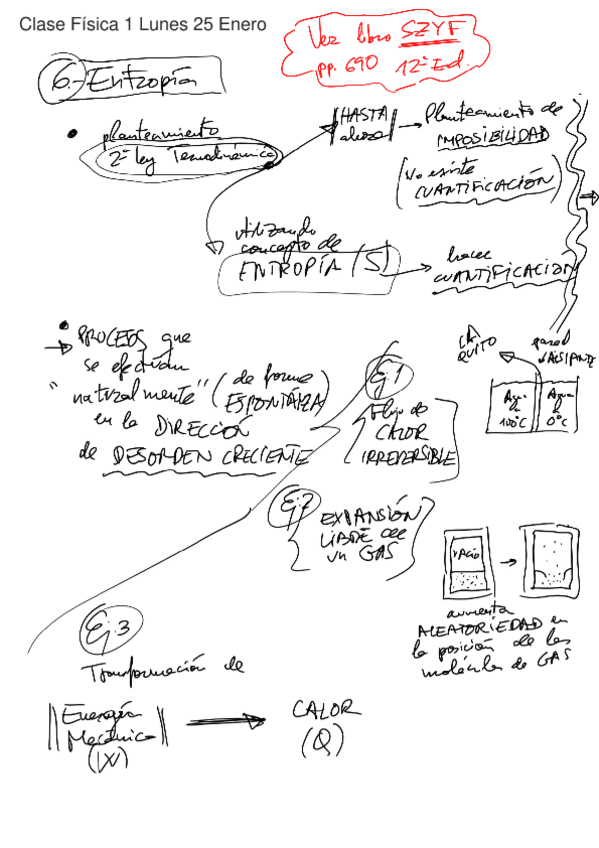 Clase Física 1 Lunes 25 Enero
Ver libro SZYF
pp. 690 12ª Ed.
6.- Entropía
planteamiento
2ª ley Termodinámica
HASTA
ahora
Planteamiento de
IMPOSIBILIDAD
(No existe
CUANTIFICACIÓN)
utilizando
concepto de
ENTROPÍA (S)
hacer
CUANTIFICACIÓN
PROCESOS que
se efectúan
"naturalmente" (de forma
ESPONTÁNEA)
en la DIRECCIÓN
de DESORDEN CRECIENTE
Ej 1
Flujo de
CALOR
IRREVERSIBLE
LA
QUITO
pared
Agua
a
100°C
Agua
a
0°C
Ej 2
EXPANSIÓN
LIBRE de
un GAS
VACÍO
aumenta
ALEATORIEDAD en
la posición de las
moléculas de GAS
Ej 3
Transformación de
Energía
Mecánica
(W)
CALOR
(Q)